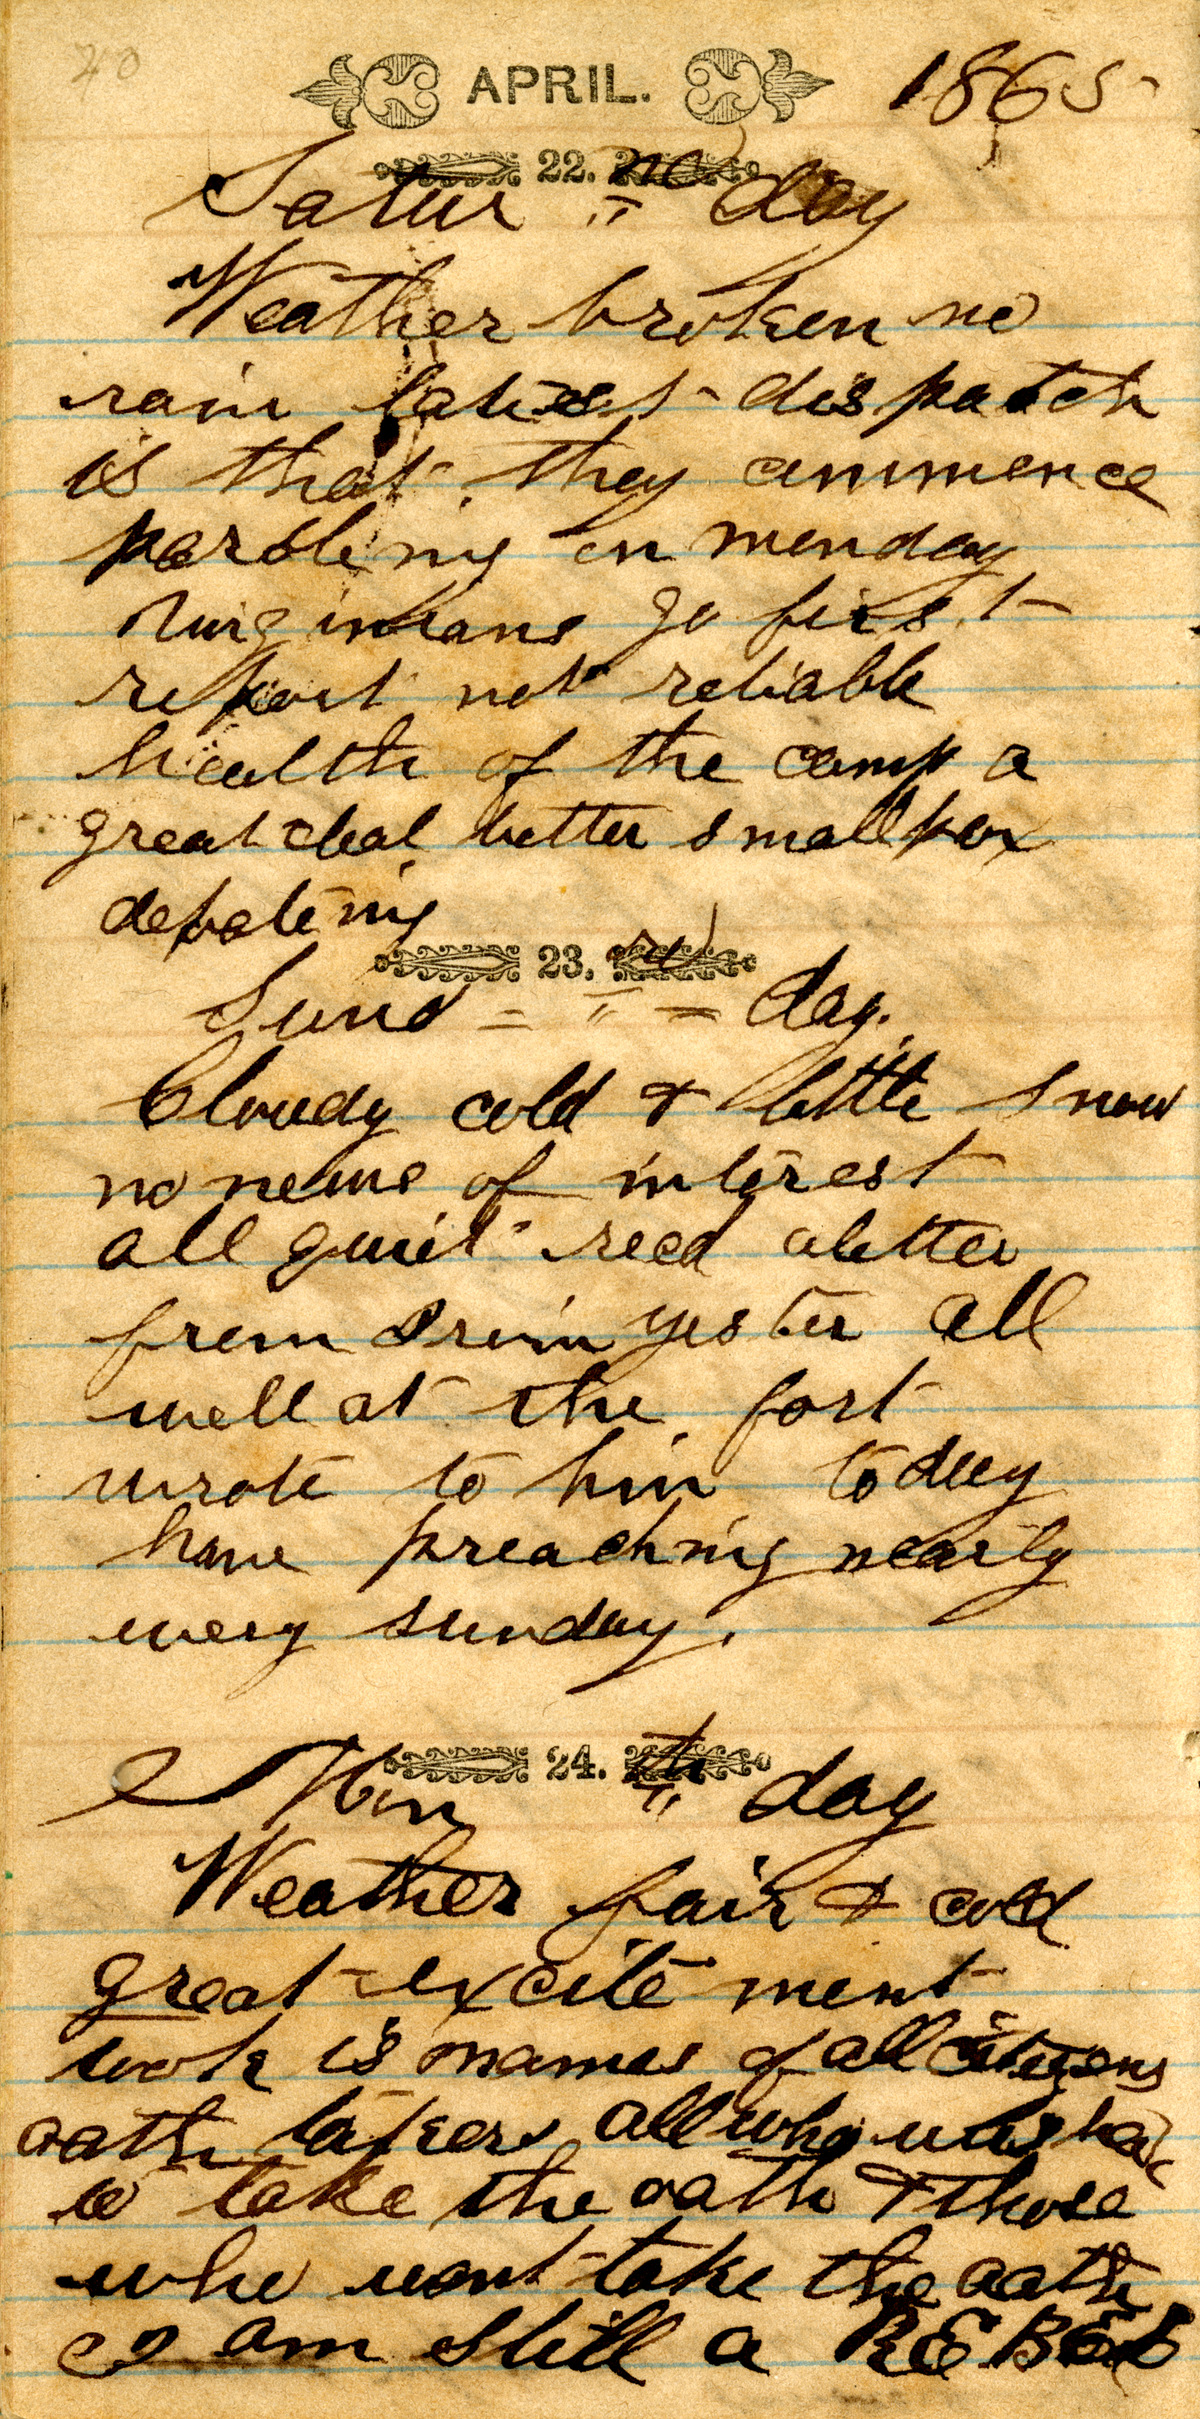 20
APRIL. 1865
22. nd
Satur = day
Weather broken no
rain latest dispatch
is that they commence
paroling on monday
virginians go first
report not reliable
health of the camp a
great deal better smallpox
debating
23. rd
Sund = = = day.
Cloudy cold & little snow
no news of interest
all quiet recd a letter
from yester all
well at the fort
wrote to him today
have preaching nearly
every sunday.
24. th
Mon = day
Weather fair & cold
great excitement
took is names of all citizens
oath takers all who wishes
to take the oath & those
who wont take the oath
I am still a REBEL